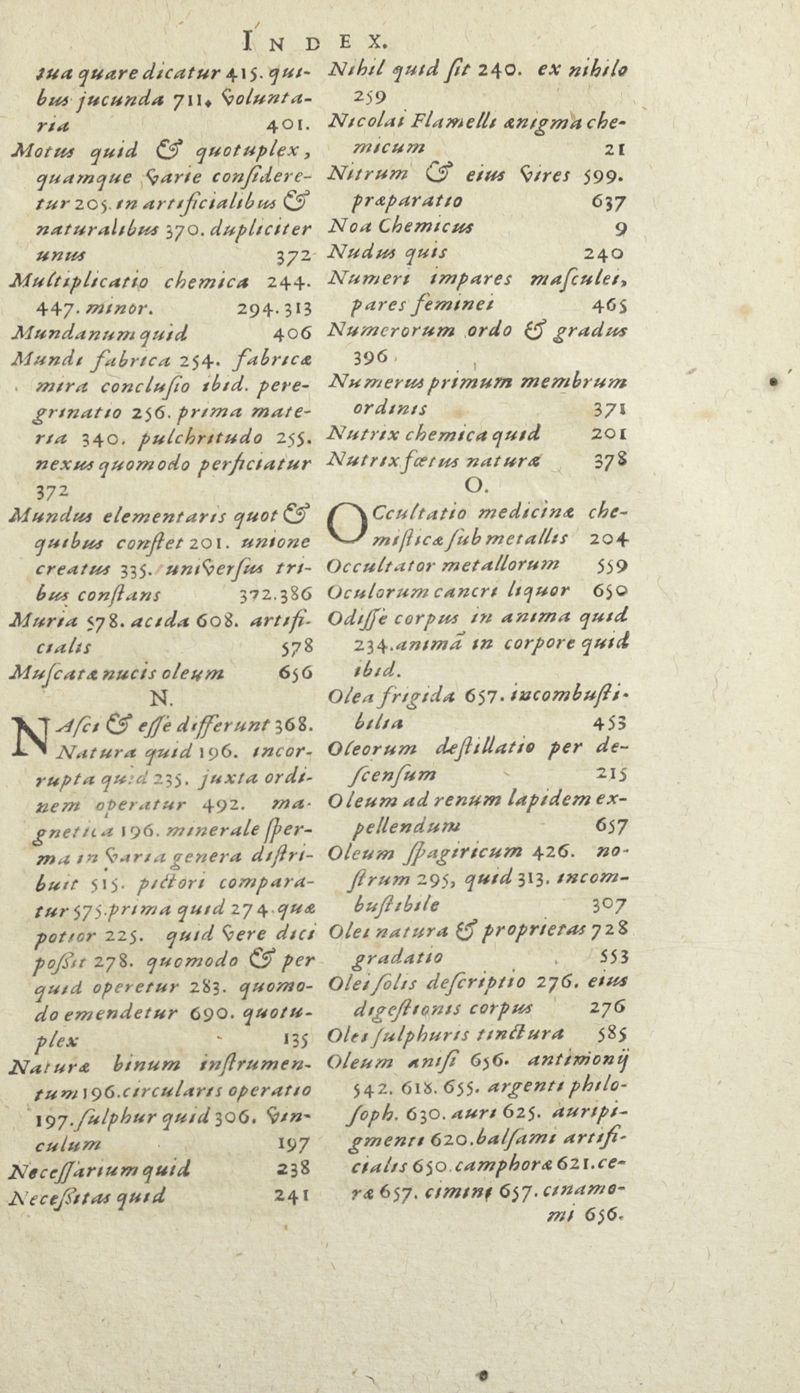 INDEX.
sua quare dicatur 415. qui-
bus jucunda 711. volunta-
ria 401.
Motus quid & quotuplex,
quamque varie conſidere-
tur 205. in artificialibus &
naturalibus 370. dupliciter
unus 372
Multiplicatio chemica 244.
447. minor. 294. 313
Mundanum quid 406
Mundi fabrica 254. fabricæ
mira concluſio ibid. pere-
grinatio 256. prima mate-
ria 340. pulchritudo 255.
nexus quomodo perficiatur
372
Mundus elementaris quot &
quibus conſtet 201. unione
creatus 335. univerſus tri-
bus conſtans 372. 386
Muria 578. acida 608. artifi-
cialis 578
Muſcatæ nucis oleum 656
N.
NAſci & eſſe differunt 368.
Natura quid 196. incor-
rupta quid 235. juxta ordi-
nem operatur 492. ma-
gnetica 196. minerale ſper-
ma in varia genera diſtri-
buit 515. pictori compara-
tur 575. prima quid 274. quæ
potior 225. quid vere dici
poſsit 278. quomodo & per
quid operetur 283. quomo-
do emendetur 690. quotu-
plex 135
Naturæ binum inſtrumen-
tum 196. circularis operatio
197. ſulphur quid 306. vin-
culum 197
Neceſſarium quid 238
Neceſsitas quid 241
Nihil quid fit 240. ex nihilo
259
Nicolai Flamelli ænigma che-
micum 21
Nitrum & eius vires 599.
præparatio 637
Noa Chemicus 9
Nudus quis 240
Numeri impares maſculei,
pares feminei 465
Numerorum ordo & gradus
396
Numerus primum membrum
ordinis 371
Nutrix chemica quid 201
Nutrix fœtus naturæ 378
O.
OCcultatio medicinæ che-
miſticæ ſub metallis 204
Occultator metallorum 559
Oculorum cancri liquor 650
Odiſſe corpus in anima quid
234. animā in corpore quid
ibid.
Olea frigida 657. incombuſti-
bilia 453
Oleorum deſtillatio per de-
ſcenſum 215
Oleum ad renum lapidem ex-
pellendum 657
Oleum ſpagiricum 426. no-
ſtrum 295, quid 313. incom-
buſtibile 307
Olei natura & proprietas 728
gradatio 553
Olei ſolis deſcriptio 276. eius
digeſtionis corpus 276
Olei ſulphuris tinctura 585
Oleum aniſi 656. antimonij
542. 618. 655. argenti philo-
ſoph. 630. auri 625. auripi-
gmenti 620. balſami artifi-
cialis 650. camphoræ 621. ce-
ræ 657. cimini 657. cinamo-
mi 656.